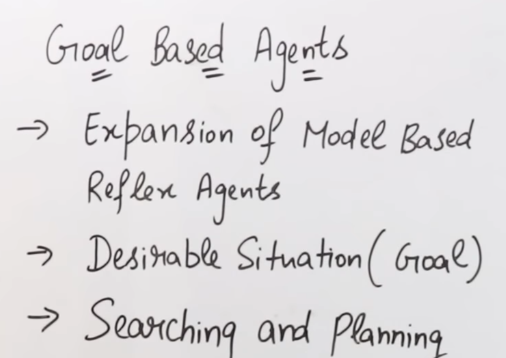 Goal Based Agents
→ Expansion of Model Based
Reflex Agents
→ Desirable Situation (Goal)
→ Searching and Planning